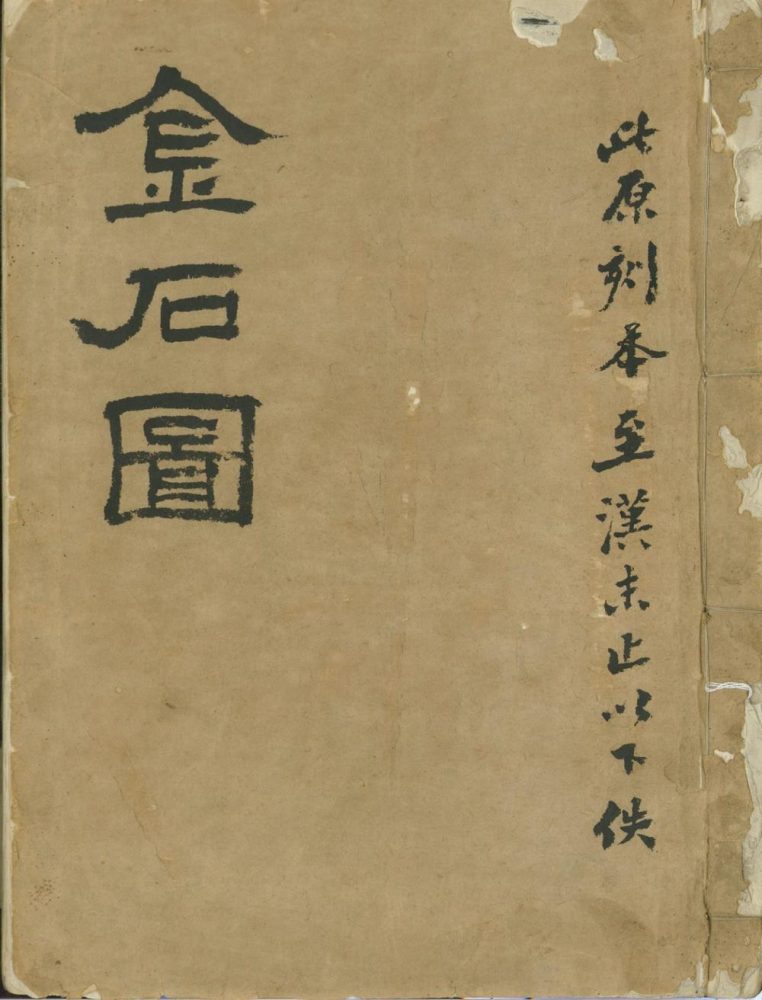 此原刻本至漢末止以下佚
金石圖